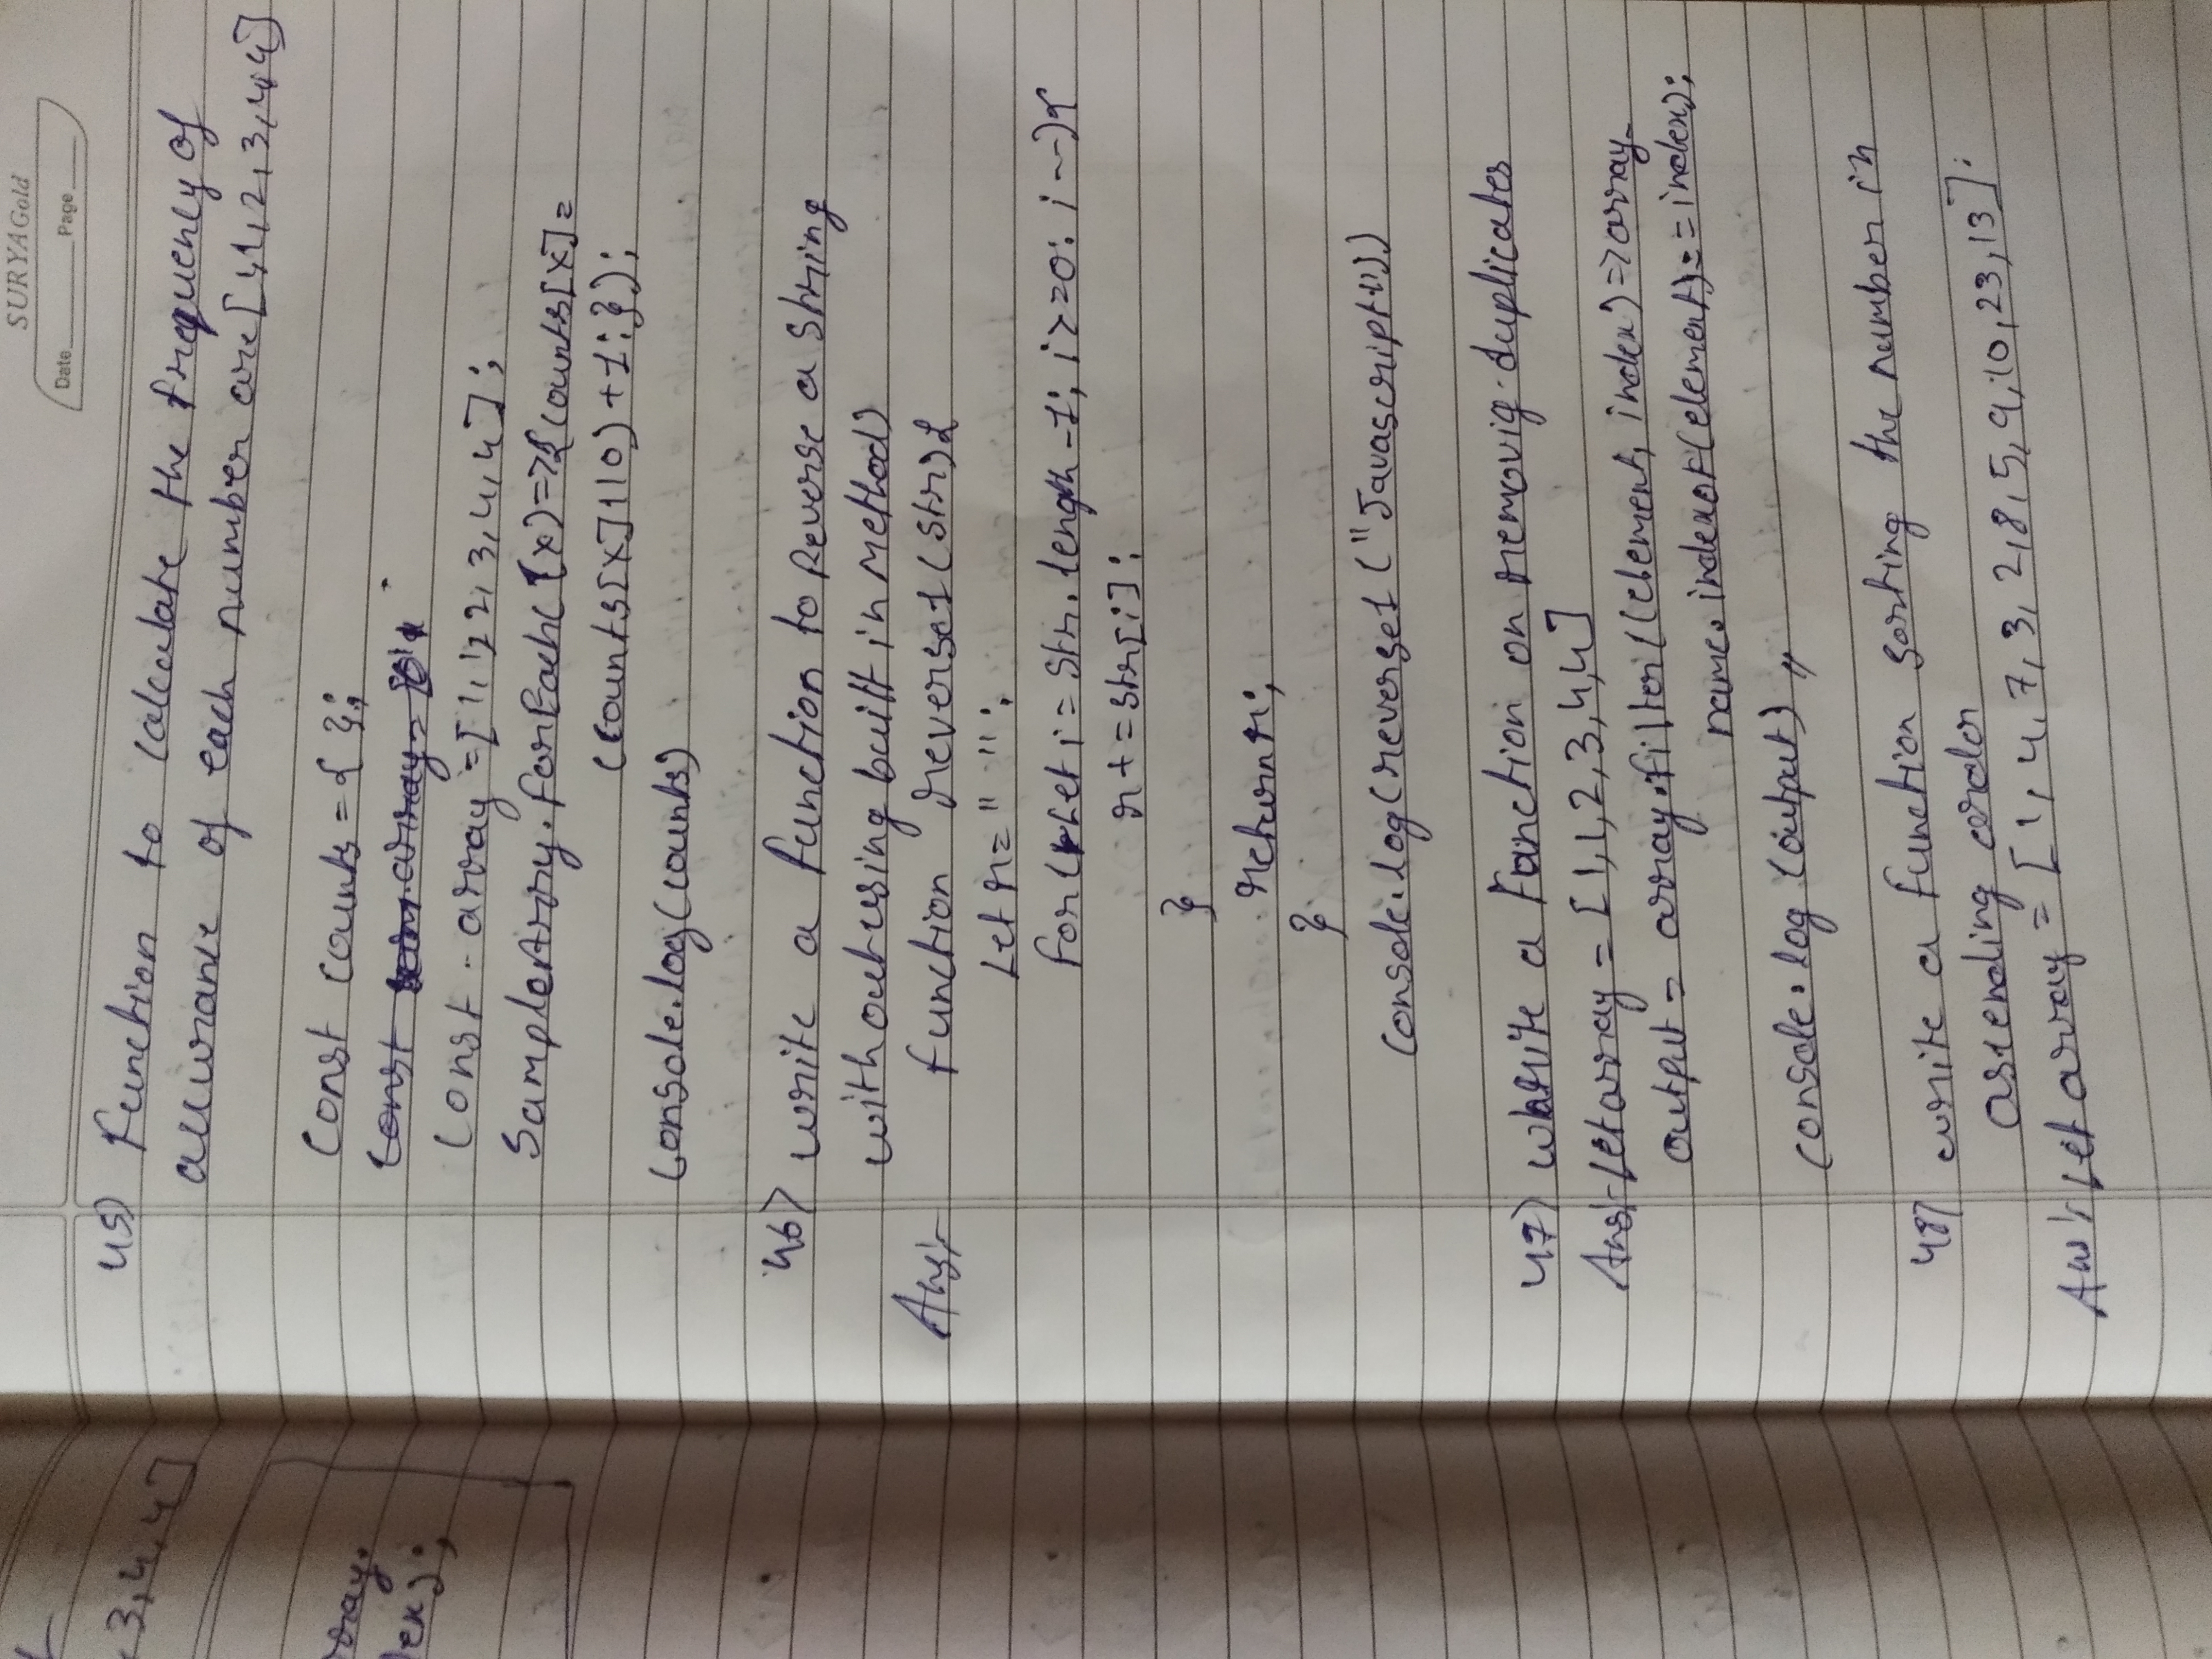 SURYAGold
Date Page
45) Function to calculate the frequency of
of each number are [1,1,2,3,4,4]
const counts = { };
const array = [1,1,2,2,3,4,4];
SampleArry.forEach((x)=>{counts[x]=
(counts[x]||0)+1;});
console.log(counts)
46) write a function to Reverse a string
without using built in method
Ans:- function reverse1(str){
Let r= " ";
for(let i= str.length-1; i>=0; i--){
r+=str[i];
}
return r;
}
console.log(reverse1("Javascript"))
47) write a Function on removig duplicates
Ans:- let array = [1,1,2,3,4,4]
output = array.filter((element, index)=>array
name.indexof(element)==index);
console.log (output) //
48) write a function sorting the number in
assending order
Ans:- let array = [1,4,7,3,2,8,5,9,10,23,13];
3,4,4]